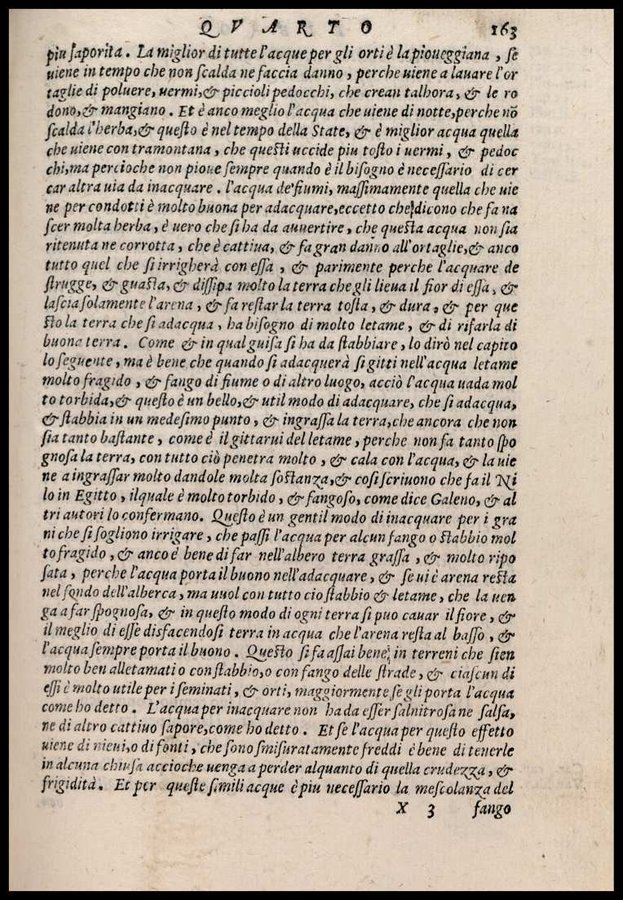 QVARTO 163
piu saporita. La miglior di tutte l'acque per gli orti è la pioueggiana, se
uiene in tempo che non scalda ne faccia danno, perche uiene a lauare l'or
taglie di poluere, uermi, & piccioli pedocchi, che crean talhora, & le ro
dono, & mangiano. Et è anco meglio l'acqua che uiene di notte, perche nõ
scalda l'herba, & questo è nel tempo della State, & è miglior acqua quella
che uiene con tramontana, che questi uccide piu tosto i uermi, & pedoc
chi, ma percioche non pioue sempre quando è il bisogno è necessario di cer
car altra uia da inacquare. l'acqua de' fiumi, massimamente quella che uie
ne per condotti è molto buona per adacquare, eccetto che dicono che fa na
scer molta herba, è uero che si ha da auuertire, che questa acqua non sia
ritenuta ne corrotta, che è cattiua, & fa gran danno all'ortaglie, & anco
tutto quel che si irrigherà con essa, & parimente perche l'acquare de
strugge, & guasta, & dissipa molto la terra che gli lieua il fior di essa, &
lascia solamente l'arena, & fa restar la terra tosta, & dura, & per que
sto la terra che si adacqua, ha bisogno di molto letame, & di rifarla di
buona terra. Come & in qual guisa si ha da stabbiare, lo dirò nel capito
lo seguente, ma è bene che quando si adacquerà si gitti nell'acqua letame
molto fragido, & fango di fiume o di altro luogo, acciò l'acqua uada mol
to torbida, & questo è un bello, & util modo di adacquare, che si adacqua,
& stabbia in un medesimo punto, & ingrassa la terra, che ancora che non
sia tanto bastante, come è il gittarui del letame, perche non fa tanto spo
gnosa la terra, con tutto ciò penetra molto, & cala con l'acqua, & la uie
ne a ingrassar molto dandole molta sostanza, & cosi scriuono che fa il Ni
lo in Egitto, ilquale è molto torbido, & fangoso, come dice Galeno, & al
tri autori lo confermano. Questo è un gentil modo di inacquare per i gra
ni che si sogliono irrigare, che passi l'acqua per alcun fango o stabbio mol
to fragido, & anco è bene di far nell'albero terra grassa, & molto ripo
sata, perche l'acqua porta il buono nell'adacquare, & se ui è arena resta
nel fondo dell'alberca, ma uuol con tutto cio stabbio & letame, che la uen
ga a far spognosa, & in questo modo di ogni terra si puo cauar il fiore, &
il meglio di esse disfacendosi terra in acqua che l'arena resta al basso, &
l'acqua sempre porta il buono. Questo si fa assai bene, in terreni che sien
molto ben alletamati o con stabbio, o con fango delle strade, & ciascun di
essi è molto utile per i seminati, & orti, maggiormente se gli porta l'acqua
come ho detto. L'acqua per inacquare non ha da esser salnitrosa ne salsa,
ne di altro cattiuo sapore, come ho detto. Et se l'acqua per questo effetto
uiene di nieui, o di fonti, che sono smisuratamente freddi è bene di tenerle
in alcuna chiusa accioche uenga a perder alquanto di quella crudezza, &
frigidità. Et per queste simili acque è piu necessario la mescolanza del
X 3 fango